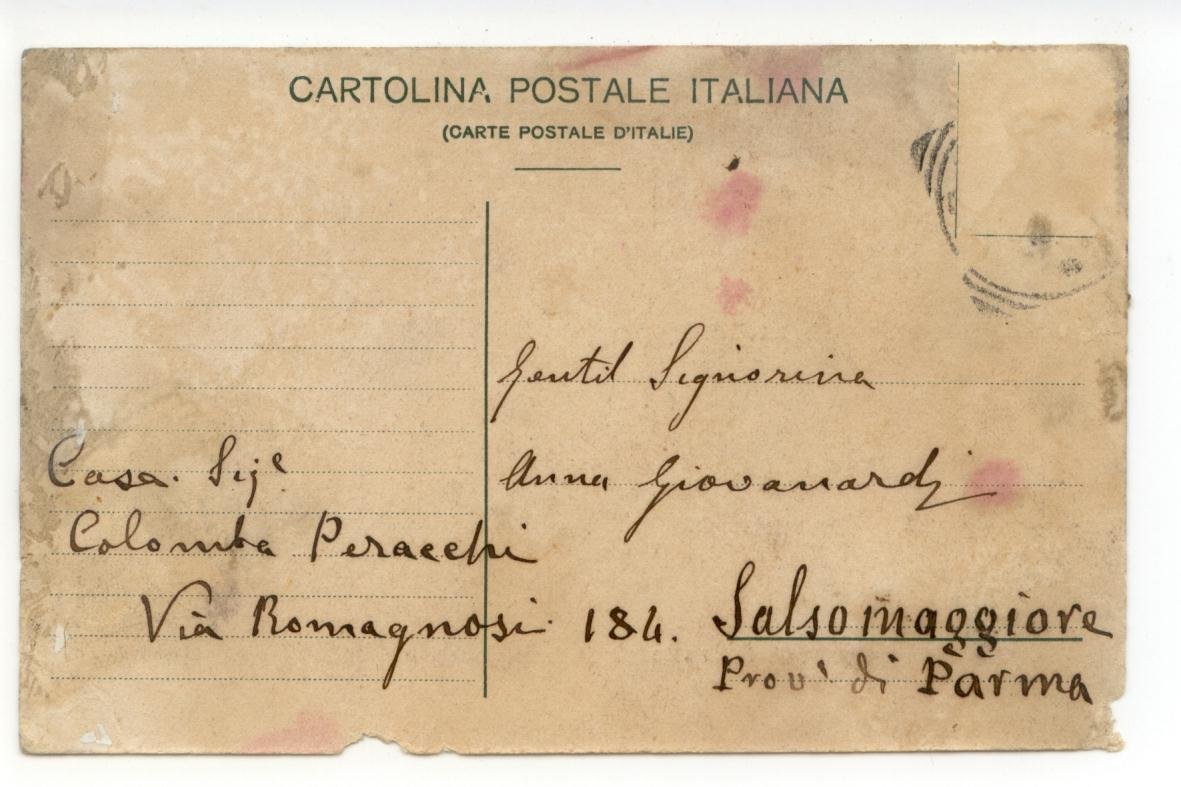 CARTOLINA POSTALE ITALIANA
(CARTE POSTALE D'ITALIE)
Gentil Signorina
Anna Giovanardi
Casa. Sig.ª
Colomba Peracchi
Vià Romagnosi 184. Salsomaggiore
Prov' di Parma